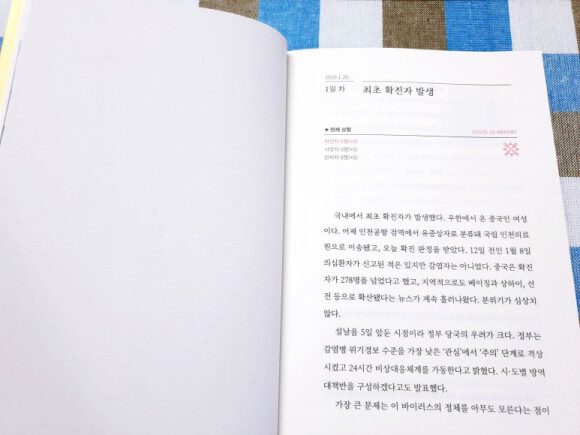 2020.1.20.
1일 차 최초 확진자 발생
◆ 현재 상황 COVID-19 REPORT
확진자 1명(+1)
사망자 0명(+0)
완치자 0명(+0)
국내에서 최초 확진자가 발생했다. 우한에서 온 중국인 여성
이다. 어제 인천공항 검역에서 유증상자로 분류돼 국립 인천의료
원으로 이송됐고, 오늘 확진 판정을 받았다. 12일 전인 1월 8일
의심환자가 신고된 적은 있지만 감염자는 아니었다. 중국은 확진
자가 278명을 넘었다고 했고, 지역적으로도 베이징과 상하이, 선
전 등으로 확산됐다는 뉴스가 계속 흘러나왔다. 분위기가 심상치
않다.
설날을 5일 앞둔 시점이라 정부 당국의 우려가 크다. 정부는
감염병 위기경보 수준을 가장 낮은 ‘관심’에서 ‘주의’ 단계로 격상
시켰고 24시간 비상대응체계를 가동한다고 밝혔다. 시·도별 방역
대책반을 구성하겠다고도 발표했다.
가장 큰 문제는 이 바이러스의 정체를 아무도 모른다는 점이